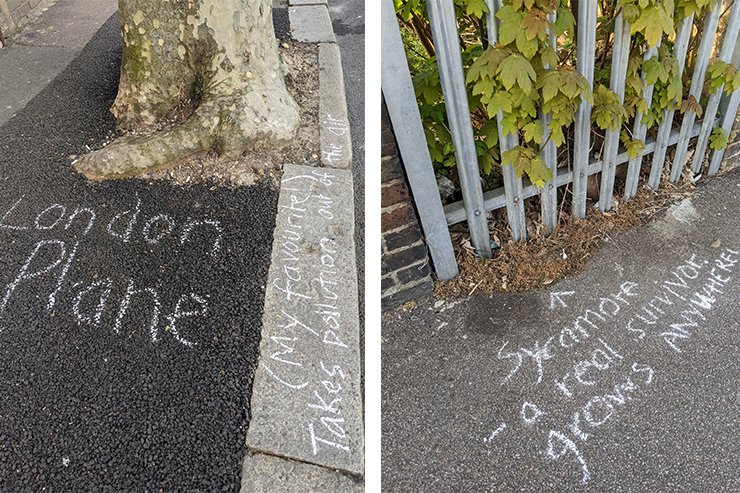 London
Plane
(My favourite!)
Takes pollution out of the air
Sycamore
- a real survivor.
grows ANYWHERE!